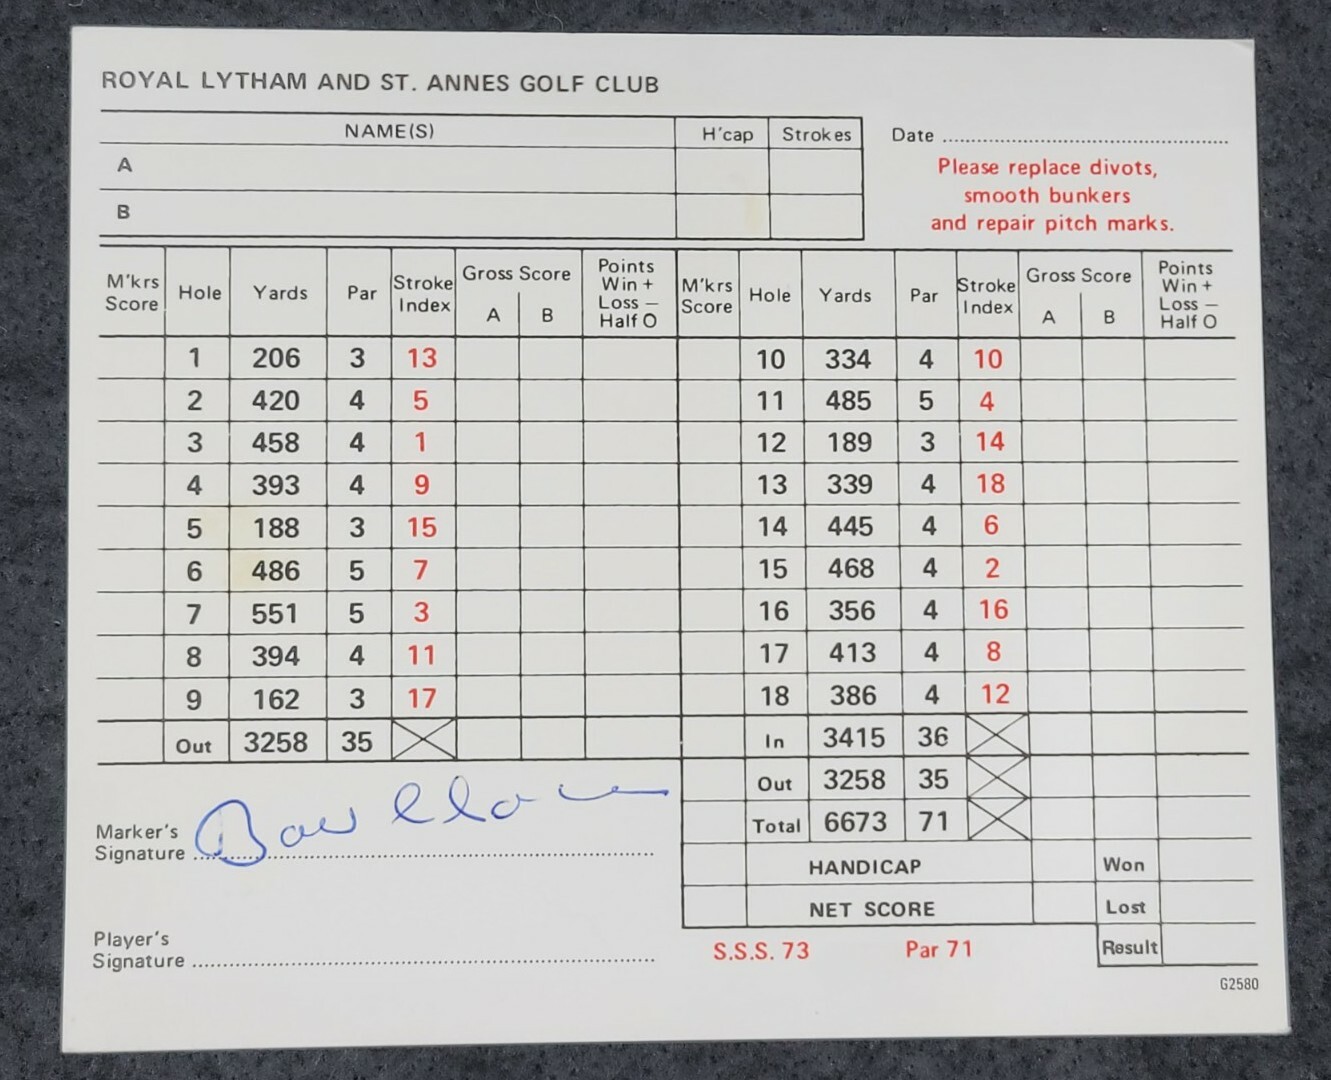 ROYAL LYTHAM AND ST. ANNES GOLF CLUB
NAME(S) H'cap Strokes
Date
A
B
Please replace divots,
smooth bunkers
and repair pitch marks.
M'krs Score Hole Yards Par Stroke Index Gross Score A B Points Win + Loss – Half O M'krs Score Hole Yards Par Stroke Index Gross Score A B Points Win + Loss – Half O
1 206 3 13 10 334 4 10
2 420 4 5 11 485 5 4
3 458 4 1 12 189 3 14
4 393 4 9 13 339 4 18
5 188 3 15 14 445 4 6
6 486 5 7 15 468 4 2
7 551 5 3 16 356 4 16
8 394 4 11 17 413 4 8
9 162 3 17 18 386 4 12
Out 3258 35 In 3415 36
Out 3258 35
Total 6673 71
Marker's
Signature
HANDICAP Won
NET SCORE Lost
Player's
Signature
S.S.S. 73 Par 71 Result
G2580